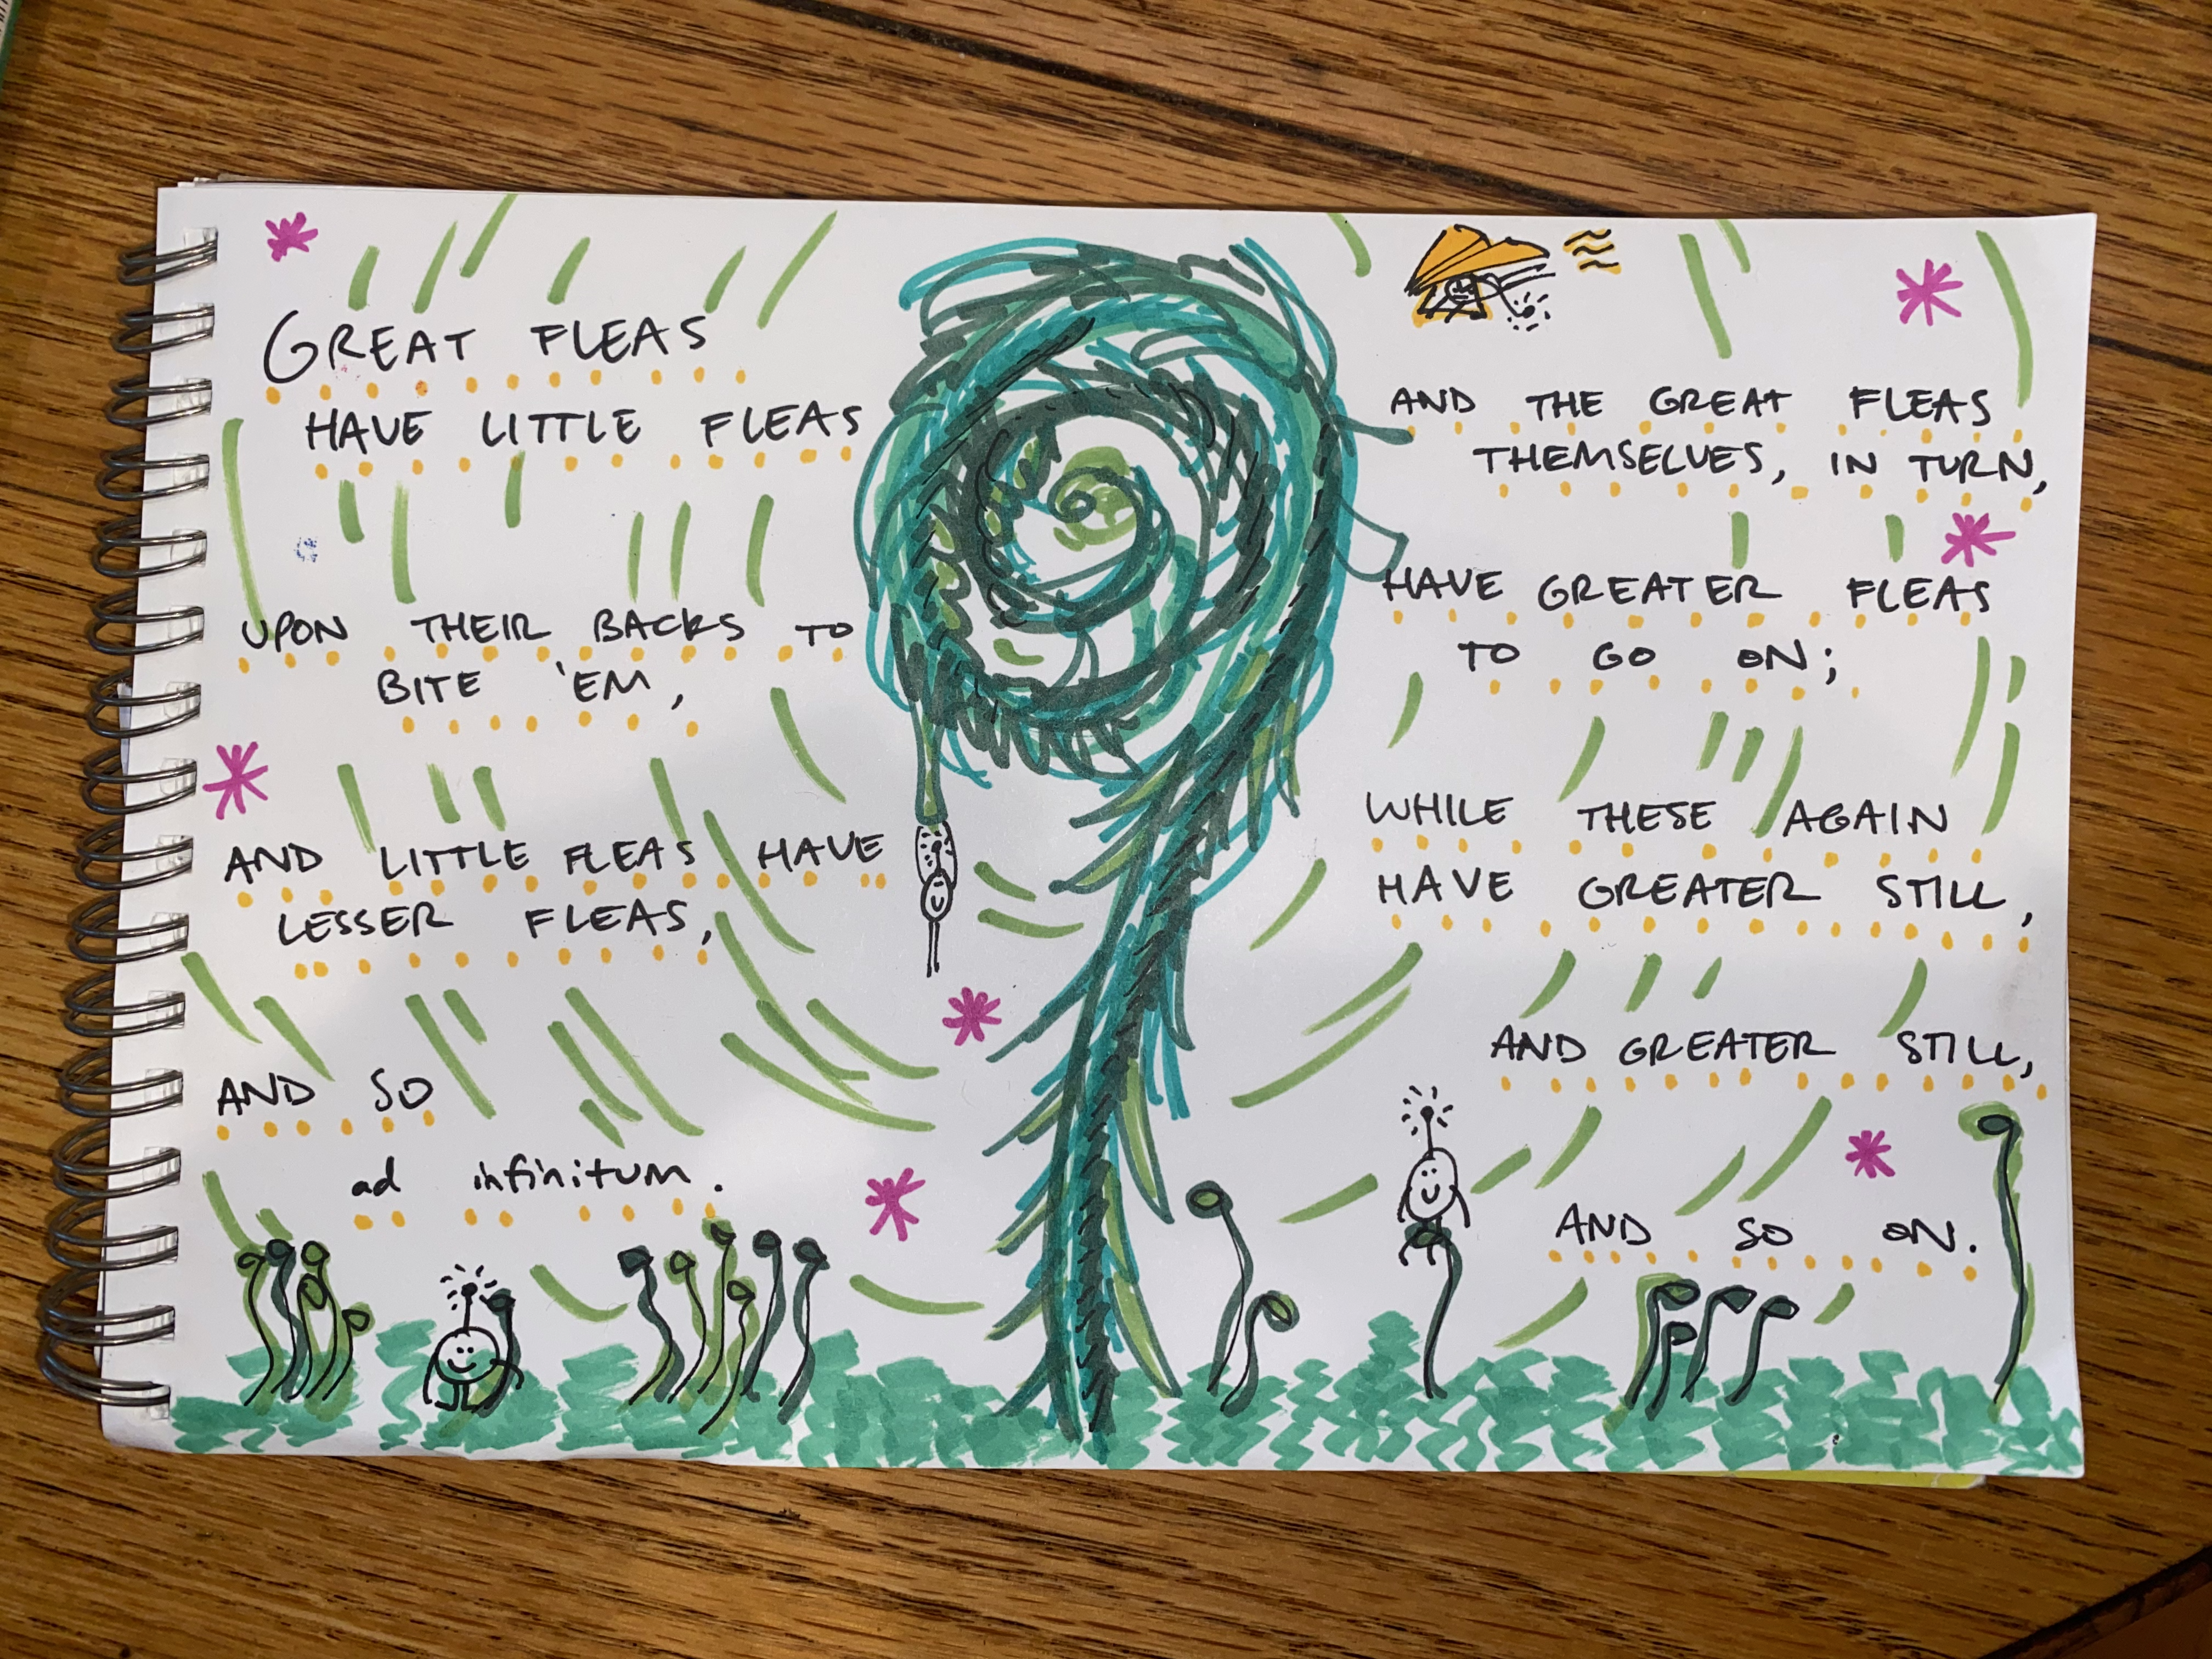 GREAT FLEAS
HAVE LITTLE FLEAS
UPON THEIR BACKS TO
BITE 'EM,
AND LITTLE FLEAS HAVE
LESSER FLEAS,
AND SO
ad infinitum.
AND THE GREAT FLEAS
THEMSELVES, IN TURN,
HAVE GREATER FLEAS
TO GO ON;
WHILE THESE AGAIN
HAVE GREATER STILL,
AND GREATER STILL,
AND SO ON.